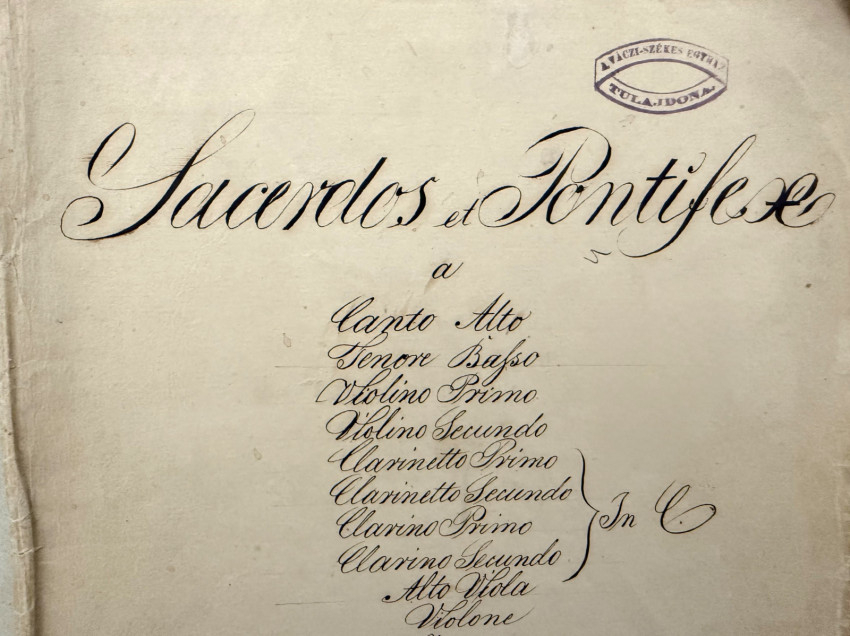 A VÁCZI-SZÉKES EGYHÁZ
TULAJDONA.
Sacerdos et Pontifex
a
Canto Alto
Tenore Basso
Violino Primo
Violino Secundo
Clarinetto Primo
Clarinetto Secundo
In C.
Clarino Primo
Clarino Secundo
Alto Viola
Violone